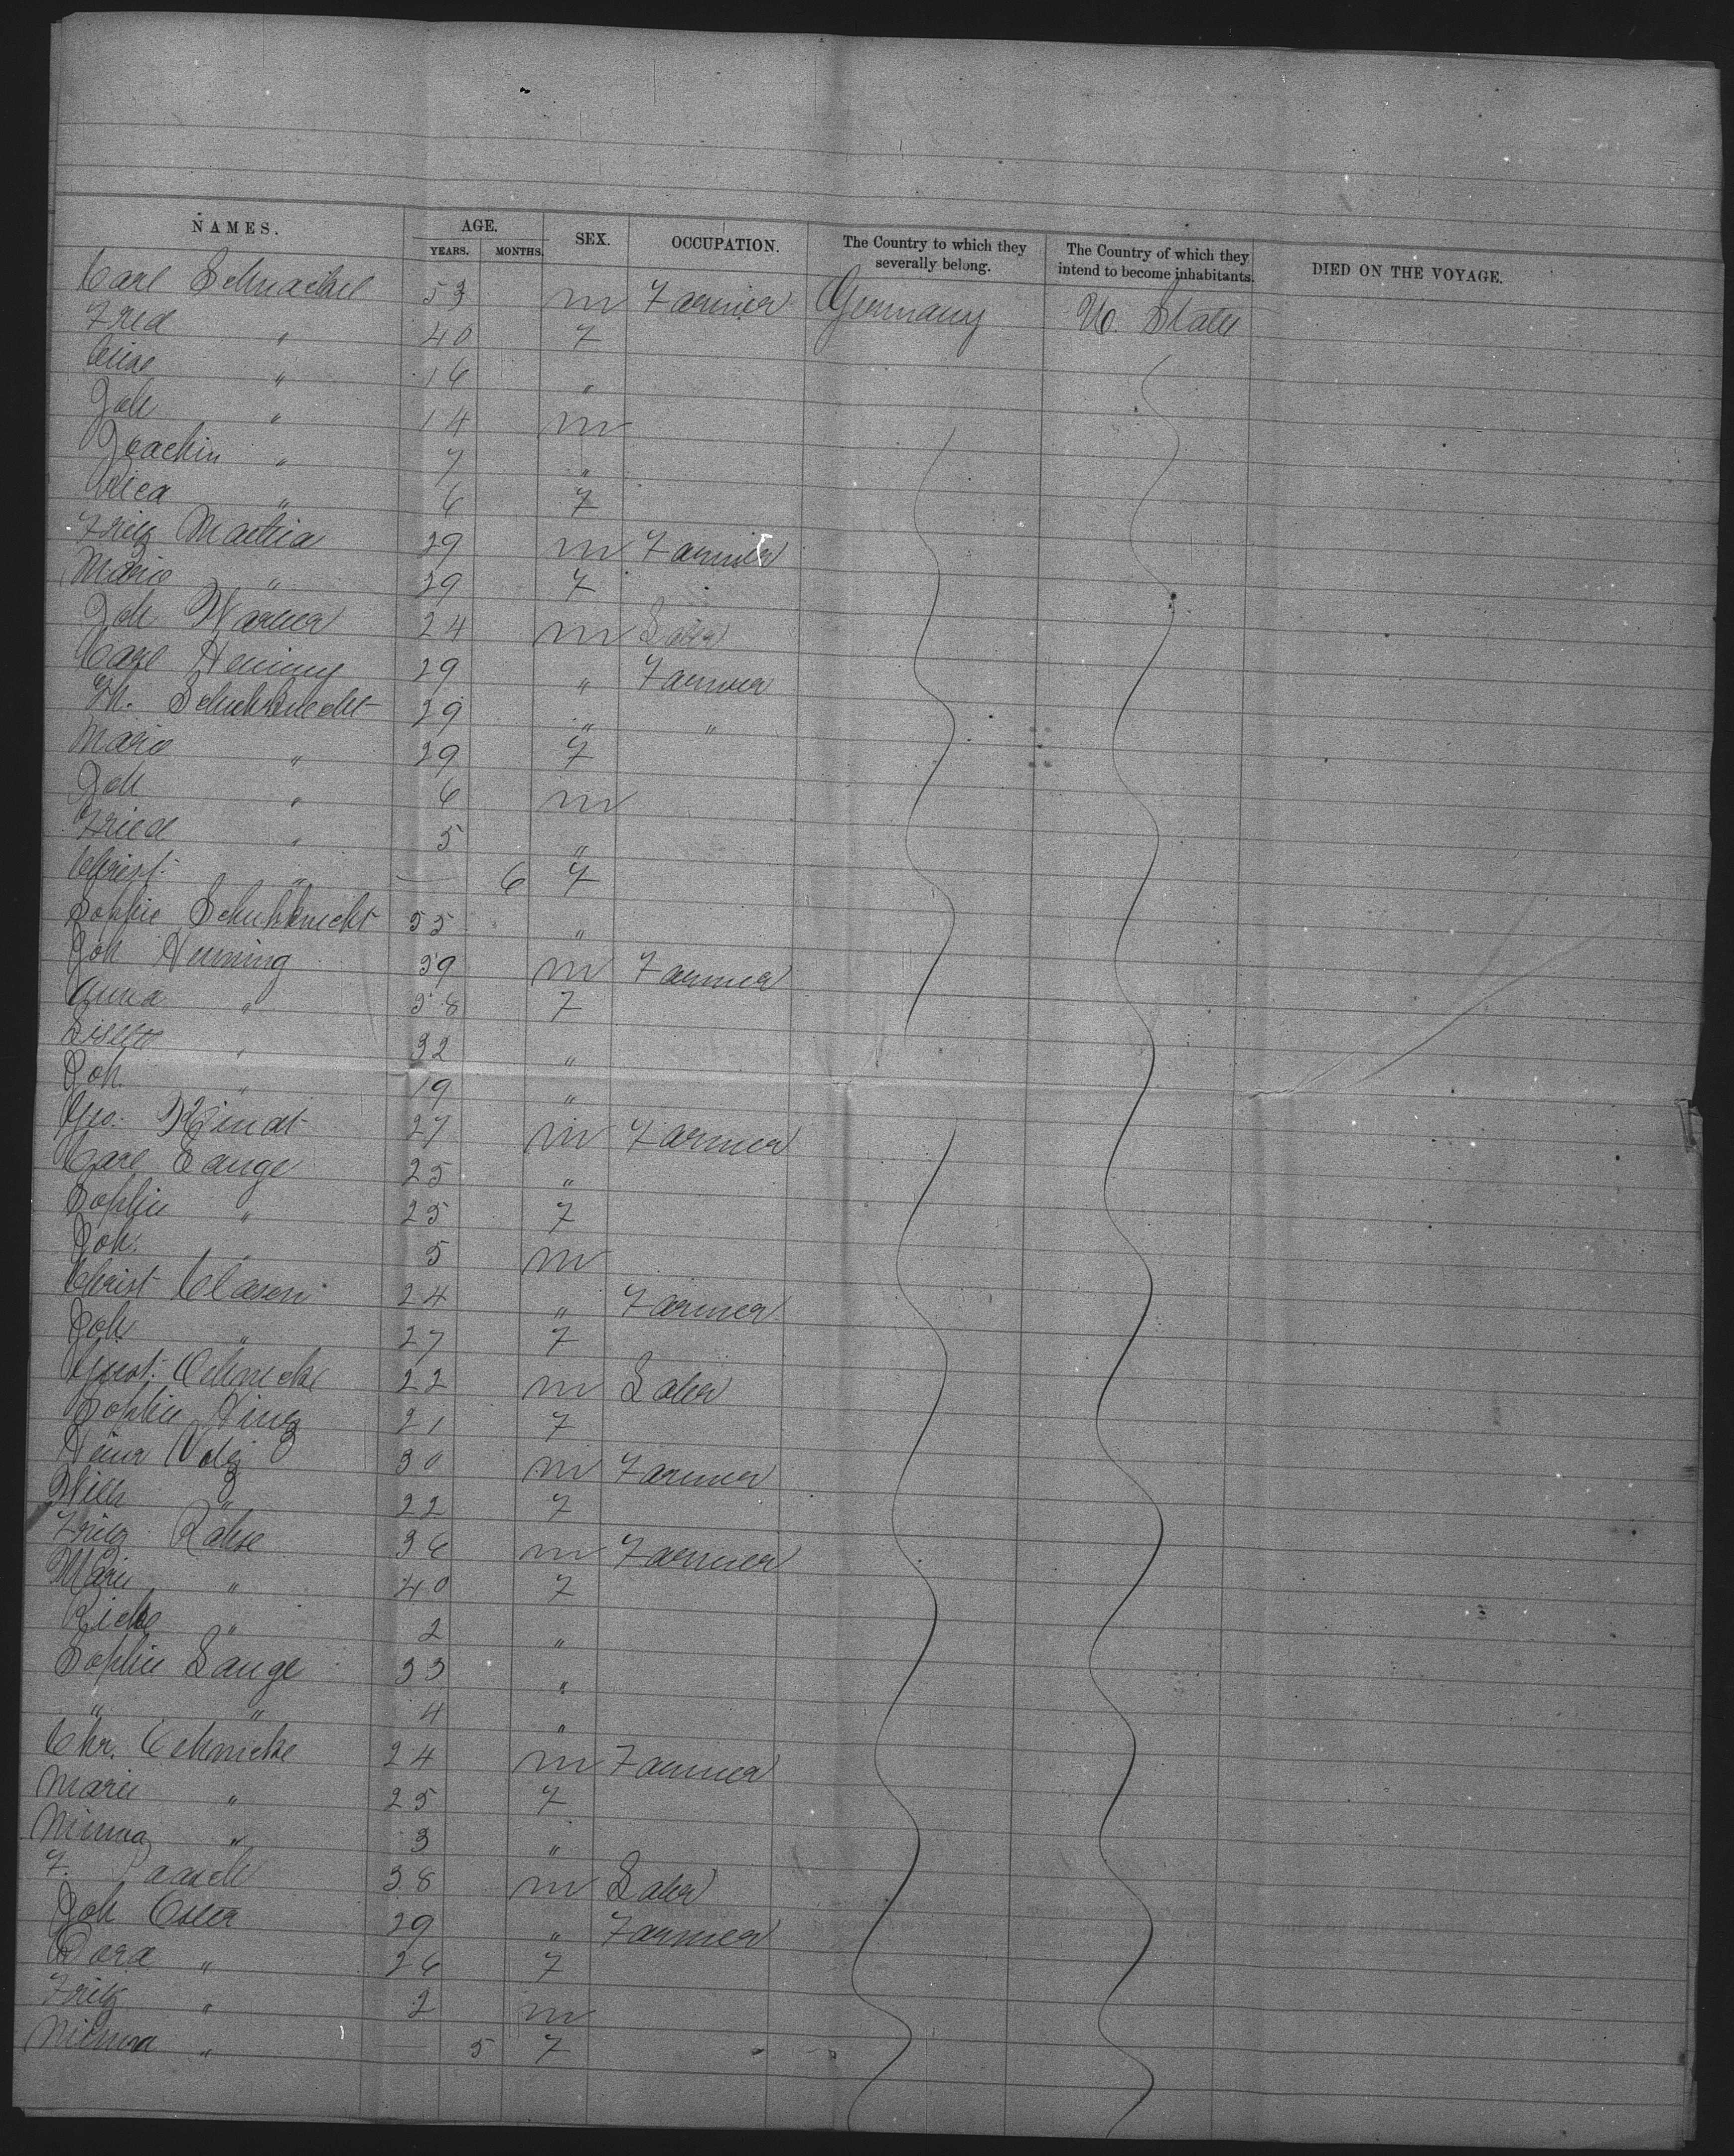 NAMES. AGE. SEX. OCCUPATION. The Country to which they severally belong. The Country of which they intend to become inhabitants. DIED ON THE VOYAGE.
YEARS. MONTHS.
Carl Schnackel 53 m Farmer Germany U. States
Fried " 40 F
" 16 "
Joh " 14 m
Joachim " 7 "
" 6 F
Fritz 29 m Farmer
Marie " 29 F
Joh 24 m Labr
Carl Henning 29 " Farmer
Schuhknecht 29 " "
Marie " 29 F
Joh " 6 m
Fried " 5 "
Christ. " — 6 F
Sophie Schuhknecht 55 "
Joh Henning 59 m Farmer
Anna " 58 F
Lisette " 32 "
Joh. " 19 "
Geo. 27 m Farmer
Carl Lange 25 "
Sophie " 25 F
Joh. " 5 m
Christ Clasen 24 " Farmer
Joh. " 27 F
Gust. Oehmcke 22 m Labr
Sophie Hinz 21 F
Heinr Volz 30 m Farmer
Wilh " 22 F
Fritz Rahse 36 m Farmer
Marie " 40 F
Ricke " 2 "
Sophie Lange 33 "
" " 4 "
Chr. Oehmcke 24 m Farmer
Marie " 25 F
Minna " 3 "
F. 38 m Labr
Joh 29 " Farmer
Dora " 26 F
Fritz " 2 m
Minna " — 5 F